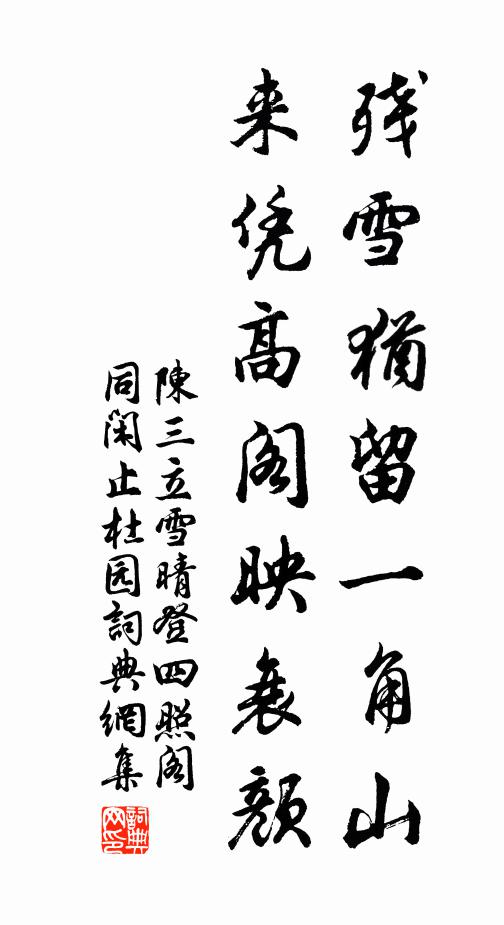 残雪猶留一角山
来凭高阁映衰颜
陳三立雪晴登四照阁
同閑止杜园詞典網集
詞典网印